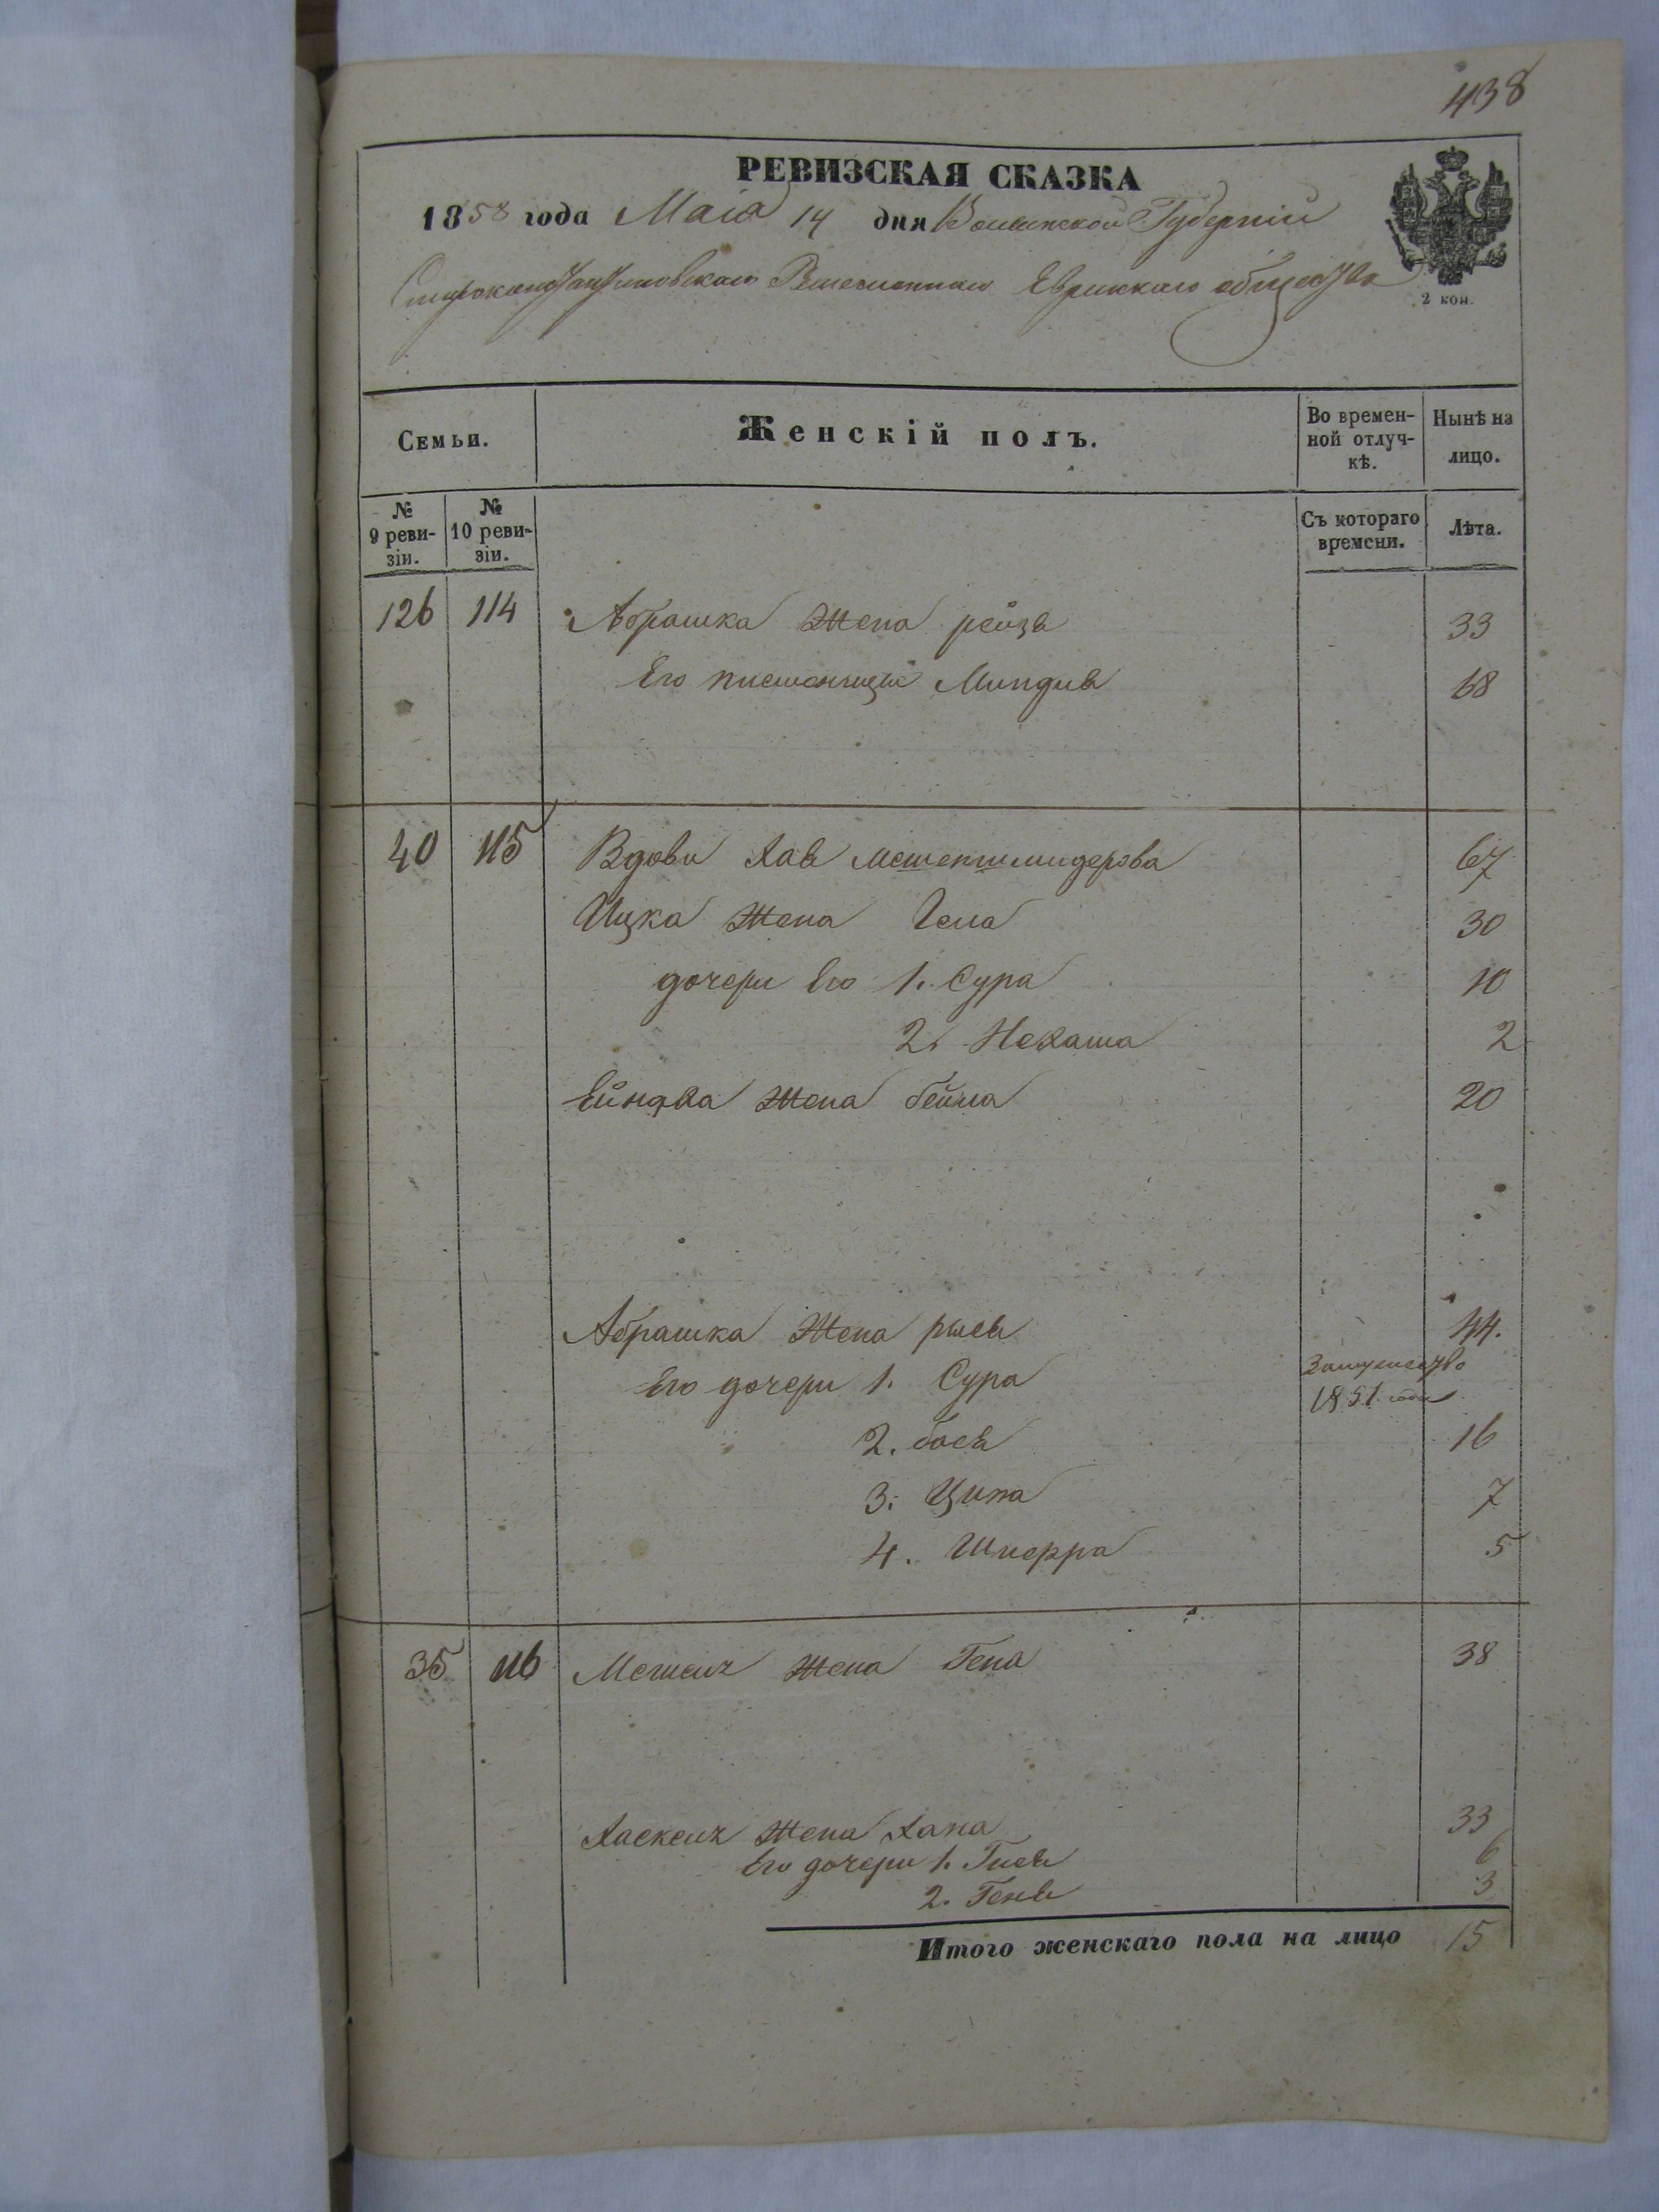 438
РЕВИЗСКАЯ СКАЗКА
1858 года Маія 14 дня Волынской Губерніи
Староконстантиновскаго Еврейскаго общества
2 коп.
Семьи.
Женскій полъ.
Во времен-
ной отлуч-
кѣ.
Нынѣ на
лицо.
№
9 реви-
зіи.
№
10 реви-
зіи.
Съ котораго
времени.
Лѣта.
126 114 Абрашка жена рейзя 33
Его Миндля 68
40 115 Вдова Хая 67
Ицка жена Гела 30
дочери Его 1. Сура 10
2. Нехама 2
жена бейла 20
Абрашка жена рыся 44.
Его дочери 1. Сура Замужество
1851 года
2. бася 16
3. Ципа 7
4. Шпефра 5
35 116 жена Гена 38
Хаскеля жена Хана 33
Его дочери 1. Гися 6
2. Геня 3
Итого женскаго пола на лицо 15